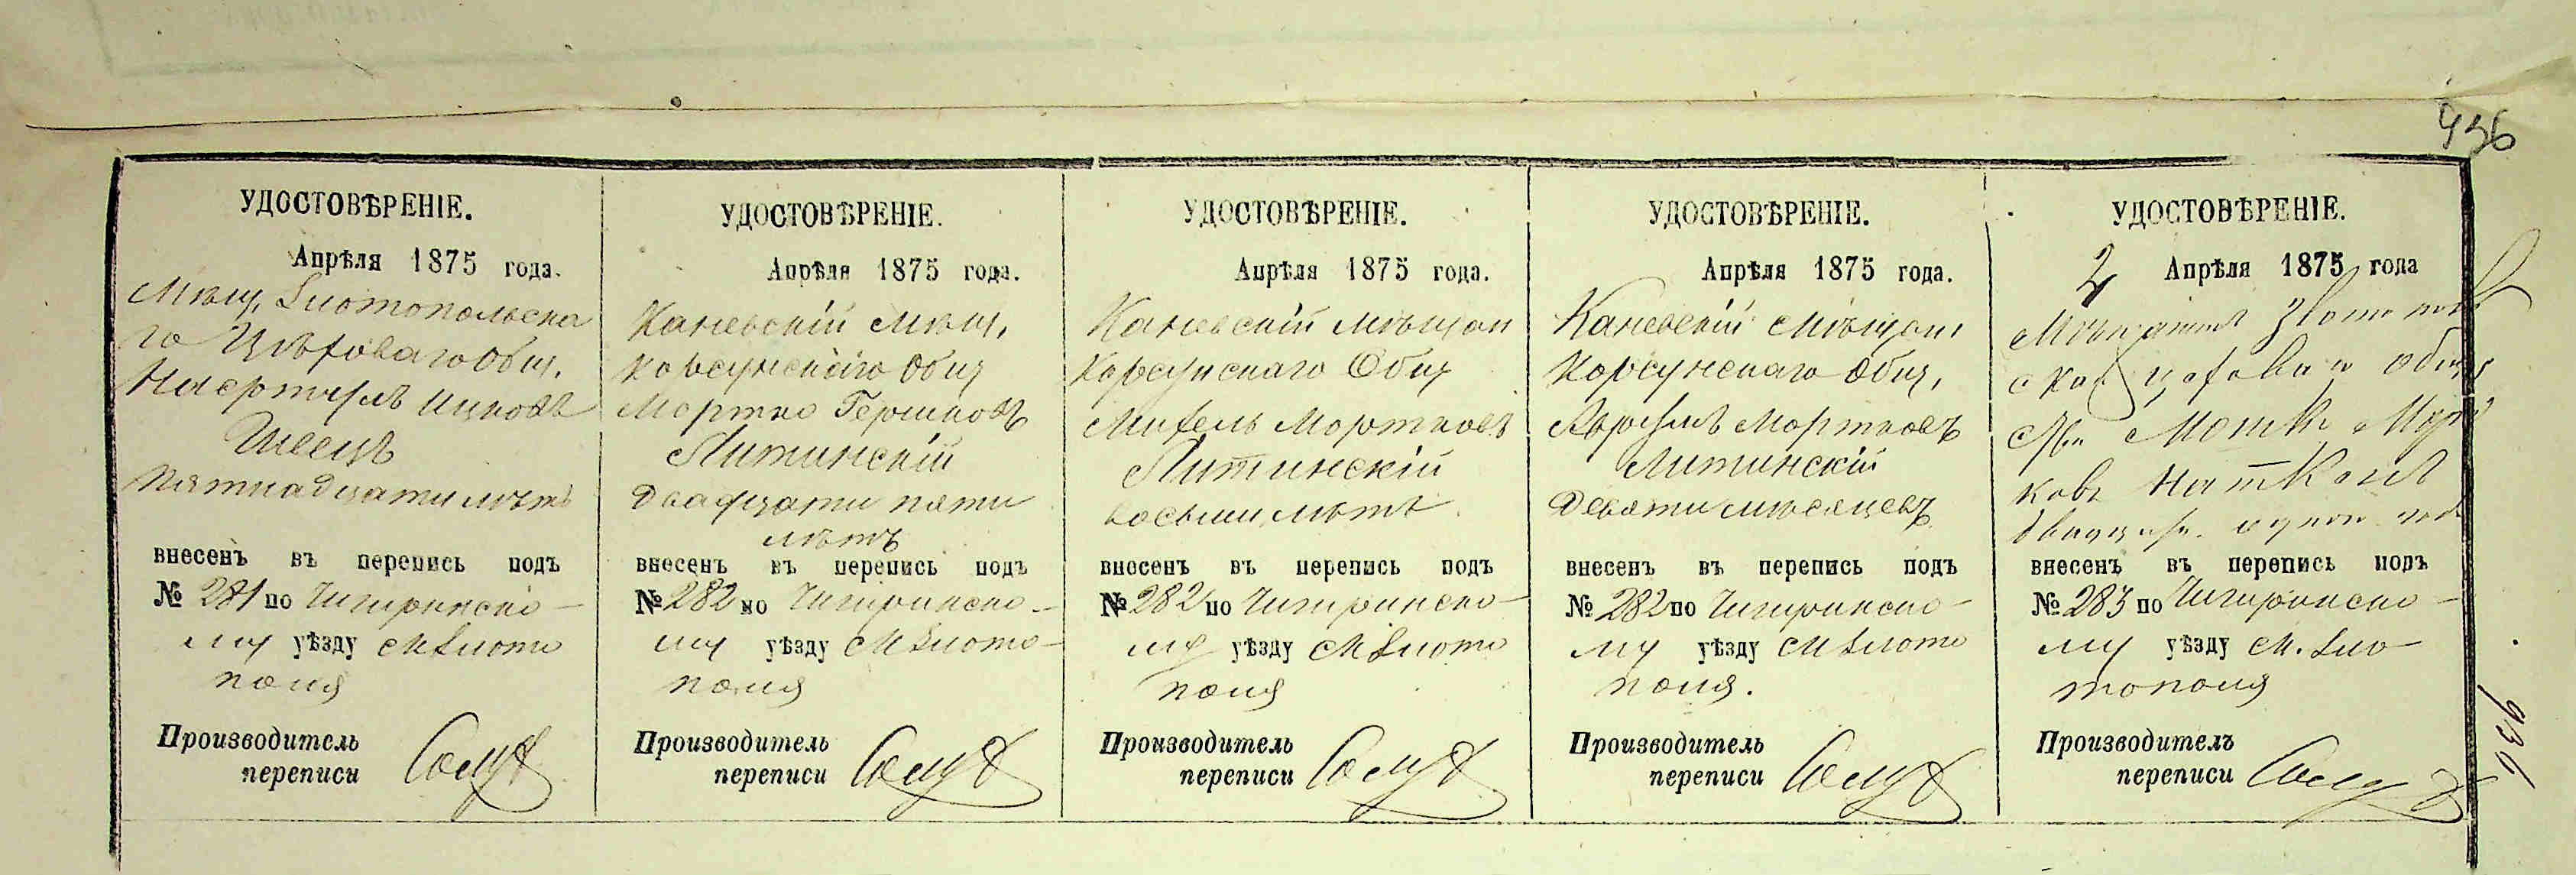 436
УДОСТОВѢРЕНІЕ.
Апрѣля 1875 года.
Мѣщ. Златопольска
го Цехового Общ.
Ицковъ
Швецъ
пятнадцати лѣтъ
внесенъ въ перепись подъ
№ 281 по Чигиринско-
му уѣзду М Злато
поля
Производитель
переписи
УДОСТОВѢРЕНІЕ.
Апрѣля 1875 года.
Каневскій мѣщ.
Корсунскаго Общ
Мортко Гершковъ
Литинскій
Двадцати пяти
лѣтъ
внесенъ въ перепись подъ
№ 282 по Чигиринско-
му уѣзду М Злато-
поля
Производитель
переписи
УДОСТОВѢРЕНІЕ.
Апрѣля 1875 года.
Каневскій мѣщан
Корсунскаго Общ
Михель Мортковъ
Литинскій
восьми лѣтъ
внесенъ въ перепись подъ
№ 282 по Чигиринско-
му уѣзду М Злато
поля
Производитель
переписи
УДОСТОВѢРЕНІЕ.
Апрѣля 1875 года.
Каневскій мѣщан.
Корсунскаго Общ.
Аврумъ Мортковъ
Литинскій
Девяти мѣсяцевъ
внесенъ въ перепись подъ
№ 282 по Чигиринско-
му уѣзду М Злато
поля.
Производитель
переписи
УДОСТОВѢРЕНІЕ.
2 Апрѣля 1875 года
Мѣщанинъ Златополь
ска Цехового Общ
Мошко Морт
ковъ
одного
внесенъ въ перепись подъ
№ 283 по Чигиринско-
му уѣзду М. Зла-
тополя
Производитель
переписи
936